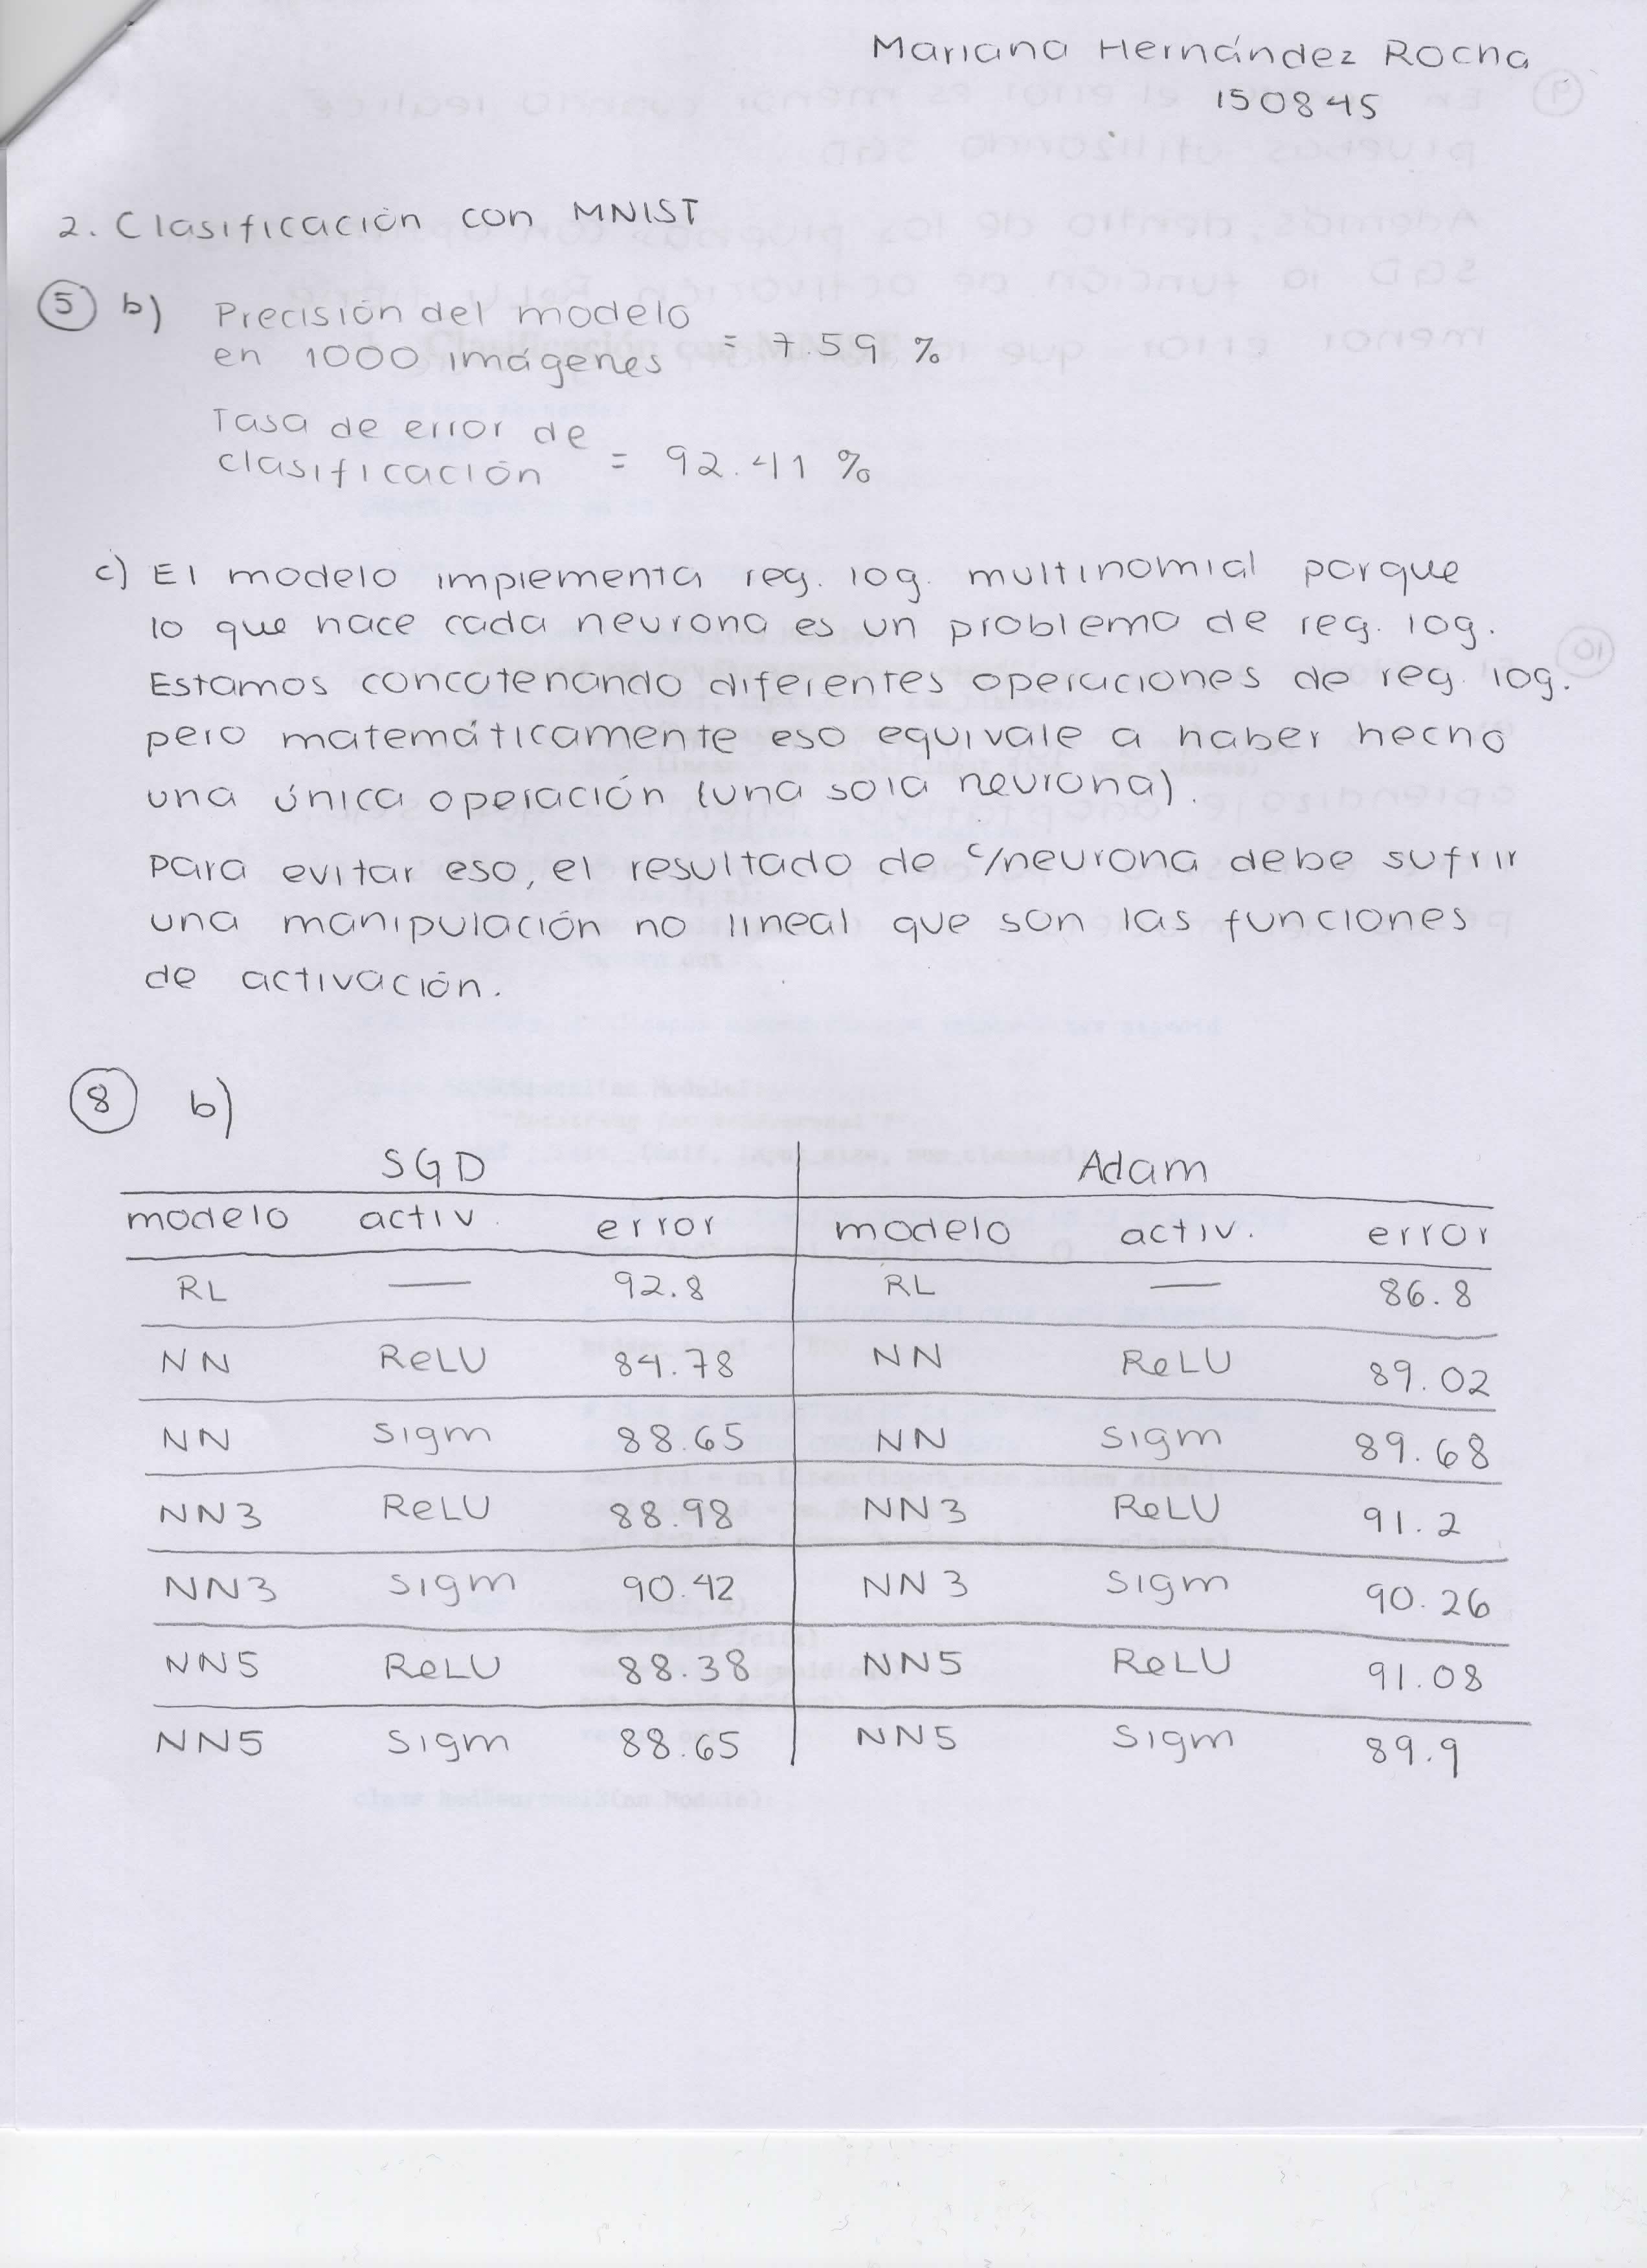 Mariana Hernández Rocha
150845
2. Clasificación con MNIST
5 b) Precisión del modelo
en 1000 imágenes = 7.59 %
Tasa de error de
clasificación = 92.41 %
c) El modelo implementa reg. log. multinomial porque
lo que hace cada neurona es un problema de reg. log.
Estamos concatenando diferentes operaciones de reg. log.
pero matemáticamente eso equivale a haber hecho
una única operación (una sola neurona).
Para evitar eso, el resultado de c/neurona debe sufrir
una manipulación no lineal que son las funciones
de activación.
8 b)
SGD Adam
modelo activ. error modelo activ. error
RL — 92.8 RL — 86.8
NN ReLU 84.78 NN ReLU 89.02
NN sigm 88.65 NN sigm 89.68
NN3 ReLU 88.98 NN3 ReLU 91.2
NN3 sigm 90.42 NN3 sigm 90.26
NN5 ReLU 88.38 NN5 ReLU 91.08
NN5 sigm 88.65 NN5 sigm 89.9